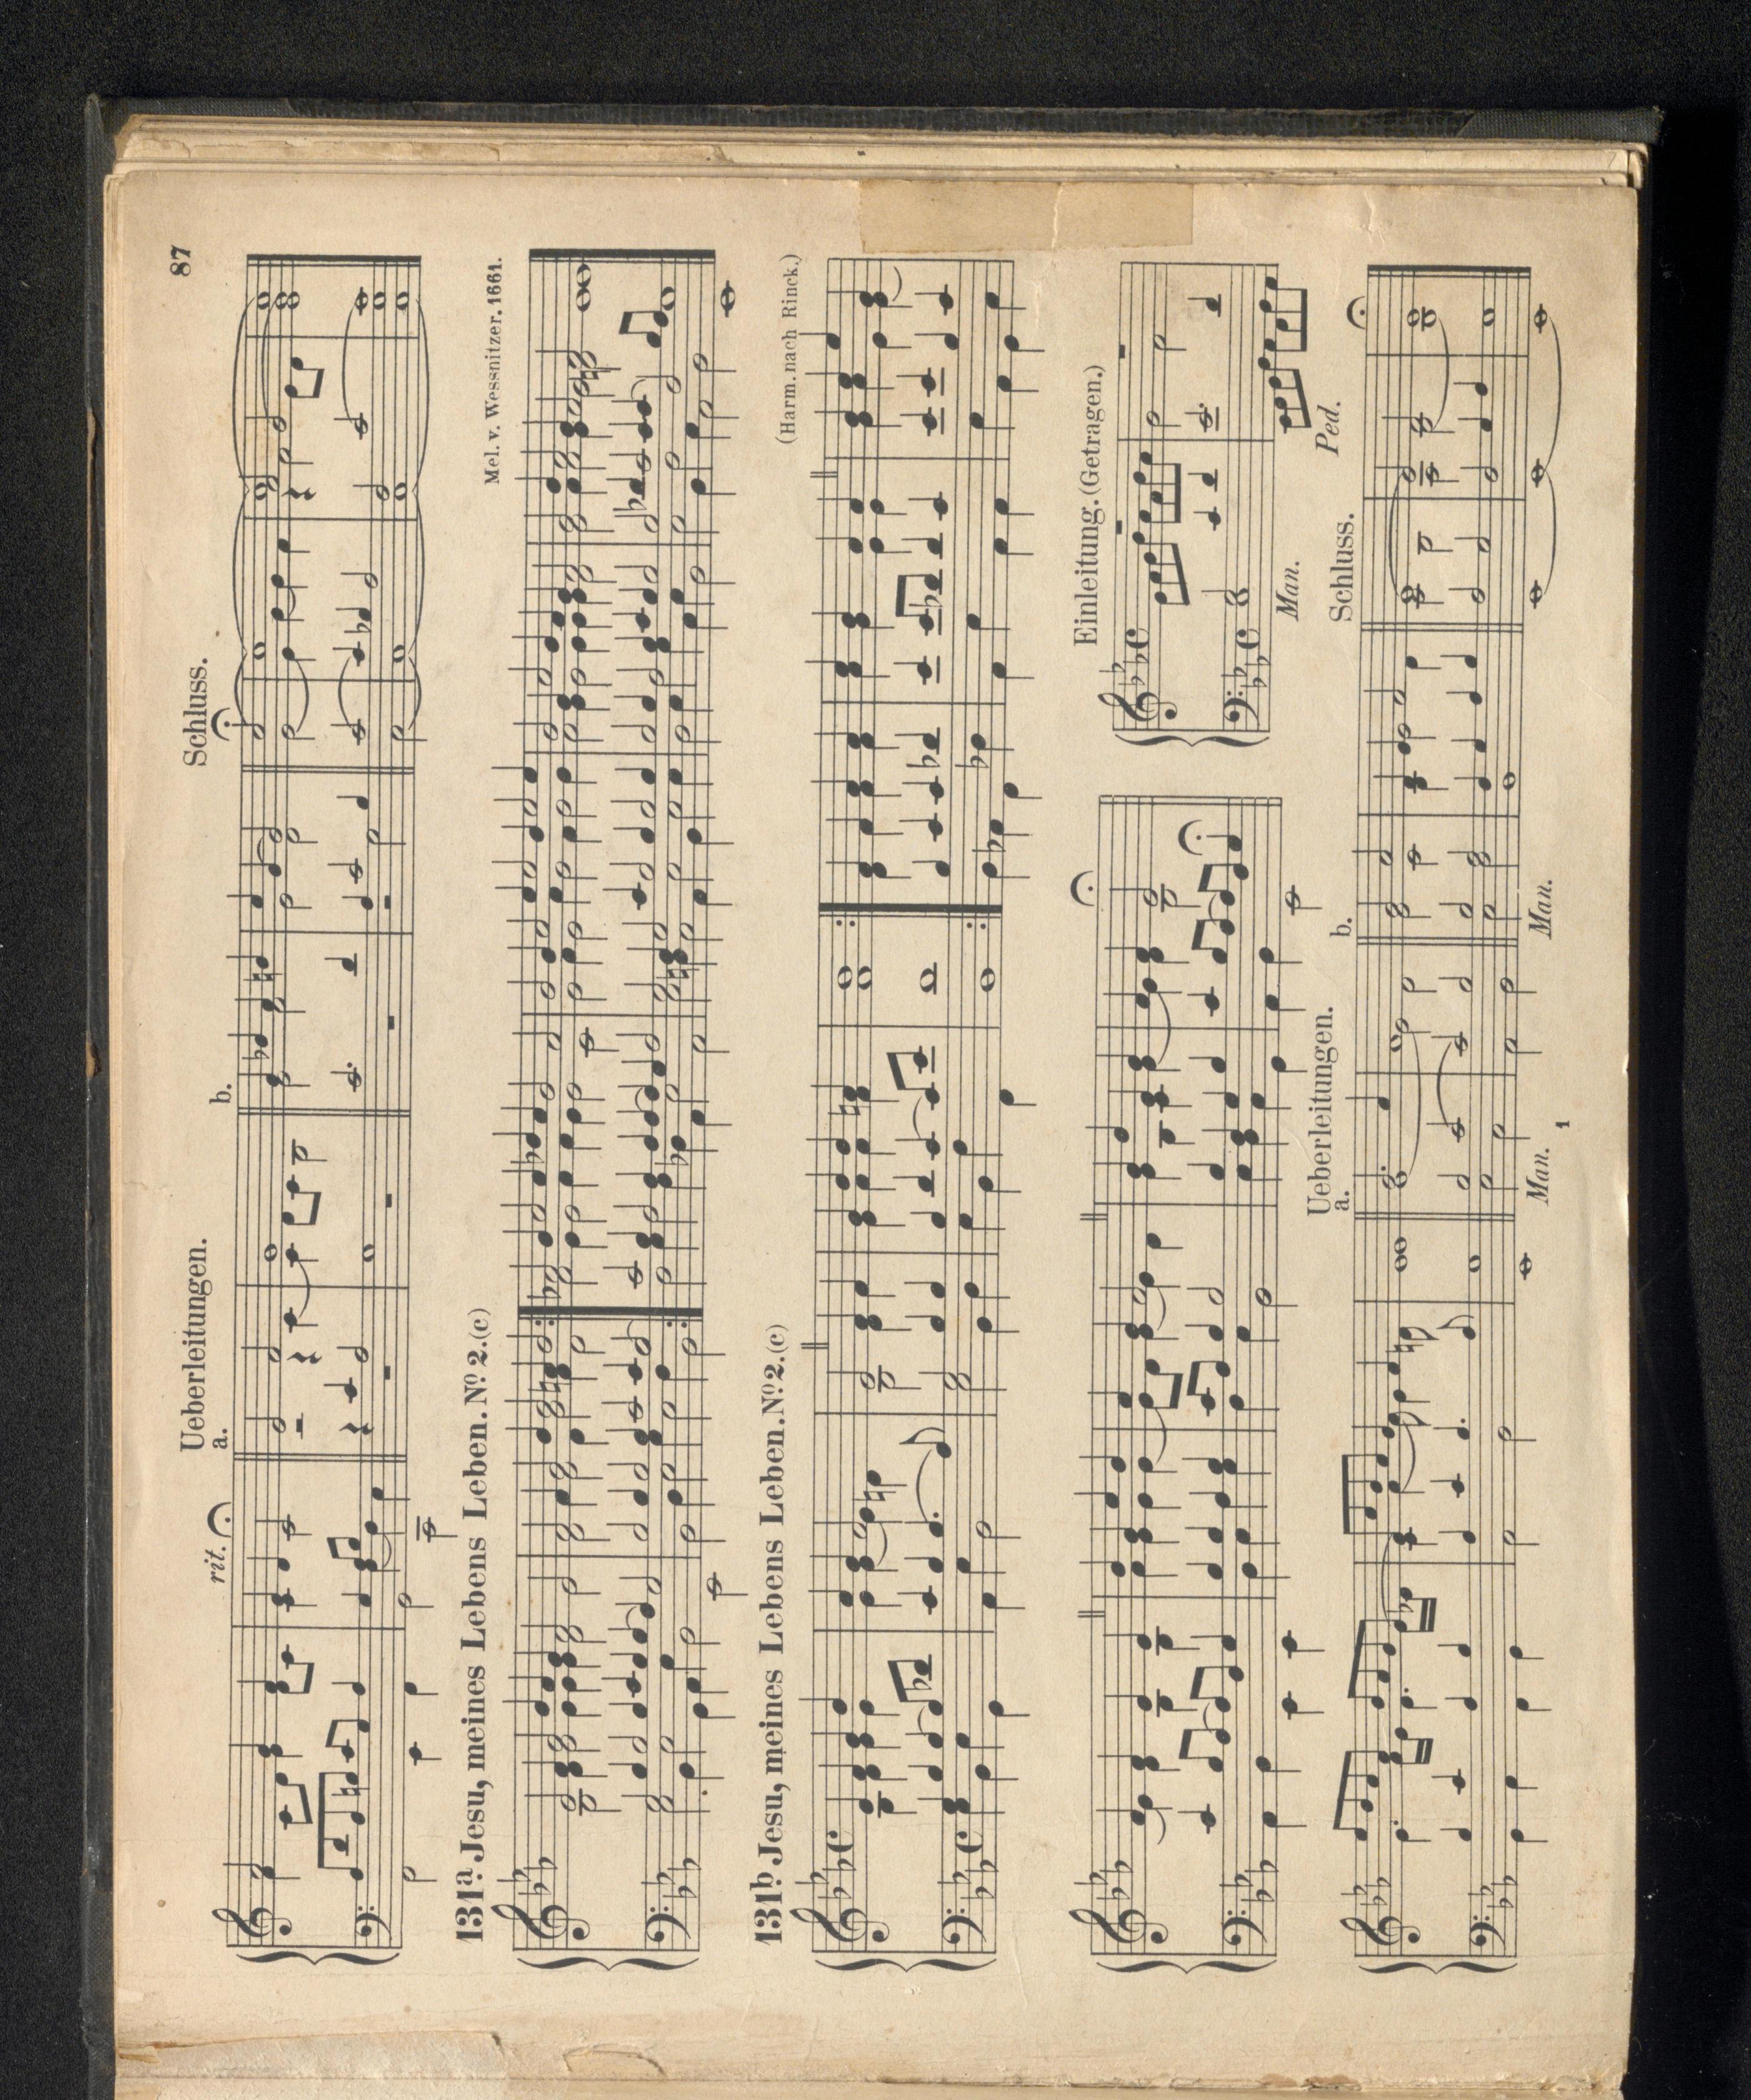 87
rit.
Ueberleitungen.
a.
b.
Schluss.
131ª. Jesu, meines Lebens Leben. Nº 2. (c)
Mel. v. Wessnitzer. 1661.
131ᵇ. Jesu, meines Lebens Leben. Nº 2. (c)
(Harm. nach Rinck.)
Einleitung. (Getragen.)
Man.
Ped.
Ueberleitungen.
a.
b.
Schluss.
Man.
Man.
1